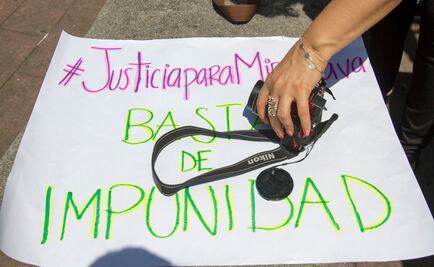 #JusticiaparaMiroslava
BASTA
DE
IMPUNIDAD
Nikon